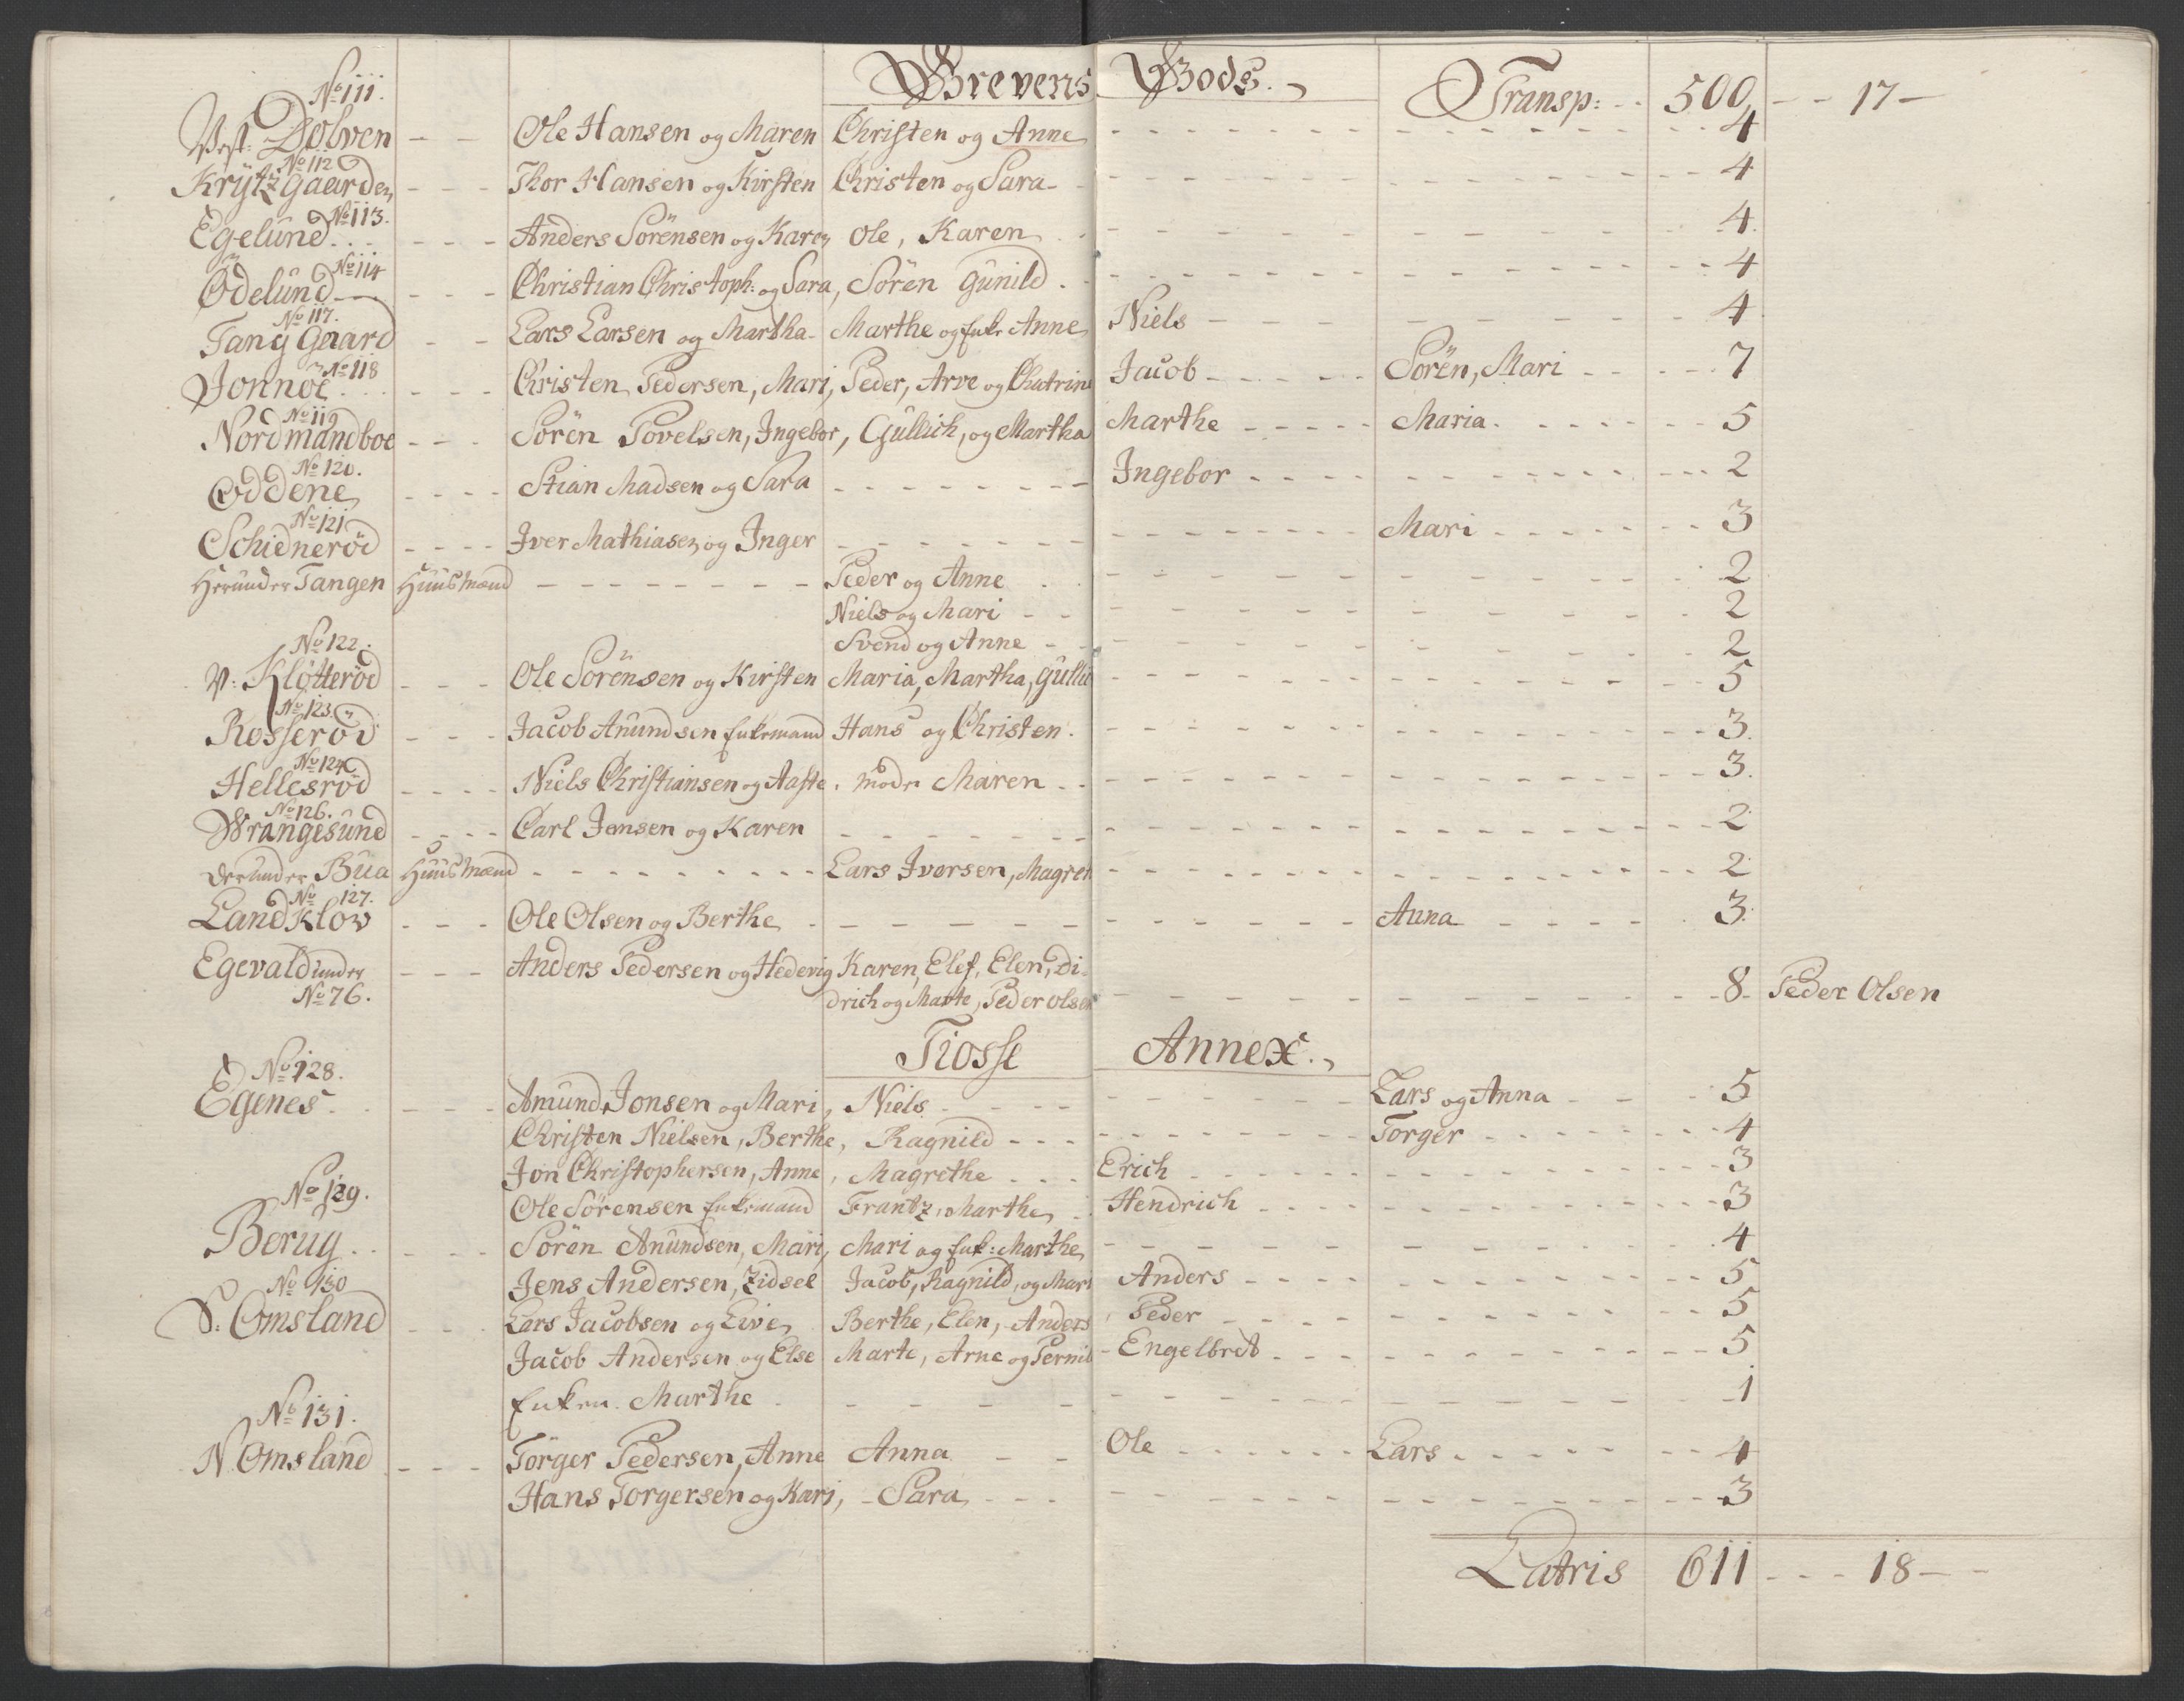 Grevens Gods.
Transp: 500 17
No 111.
Vest: Dolven Ole Hansen og Maren Christen og Anne 4
No 112
Krytz gaarden Thor Hansen og Kirsten Christen og Sara 4
No 113.
Egelund Anders Sörensen og Karen Ole, Karen 4
No 114
Ödelund Christian Christoph: og Sara, Sören Gunild 4
No 117.
Tang Gaard Lars Larsen og Martha Marthe og Enke Anne Niels 4
No 118
Jonnöe Christen Pedersen, Mari, Peder, Arve og Chatrine Jacob Sören, Mari 7
No 119
Nordmandboe Sören Povelsen, Ingebor, Gullich, og Martha Marthe Maria 5
No 120.
Oddene Stian Madsen og Sara Ingebor 2
No 121
Schienneröd Iver Mathiasen og Inger Mari 3
Herunder Tangen Huusmænd Peder og Anne 2
Niels og Mari 2
Svend og Anne 2
No 122.
V: Klötteröd Ole Sörensen og Kirsten Maria, Martha, Gullic 5
No 123
Rosseröd Jacob Anundsen Enkemand Hans og Christen 3
No 124
Hellesröd Niels Christiansen og Aaste, moder Maren 3
No 126.
Wrangesund Carl Jensen og Karen 2
Derunder Bua Huusmænd Lars Iversen, Magret 2
No 127.
Landklov Ole Olsen og Berthe Anna 3
Egevald under Anders Pedersen og Hedevig Karen, Elef, Elen, Di-
No 76. drich og Marte, Peder olsen 8 Peder Olsen
Tiosse Annex.
No 128.
Egenes Anund Jonsen og Mari, Niels Lars og Anna 5
Christen Nielsen, Berthe, Ragnild Torger 4
Jon Christophersen, Anne, Magrethe Erich 3
No 129. Ole Sörensen Enkemand Frantz, Marthe Hendrich 3
Berug Sören Anundsen, Mari, Mari og Enk: Marthe 4
No 130 Jens Andersen, Zidsel Jacob, Ragnild, og Mari Anders 5
S: Omsland Lars Jacobsen og Live Berthe, Elen, Anders, Peder 5
Jacob Andersen og Else Marte, Arne og Pernil Engelbret 5
Enken Marthe 1
No 131.
N. Omsland Törger Pedersen, Anne Anna Ole Lars 4
Hans Torgersen og Kari, Sara 3
Latris 611 18